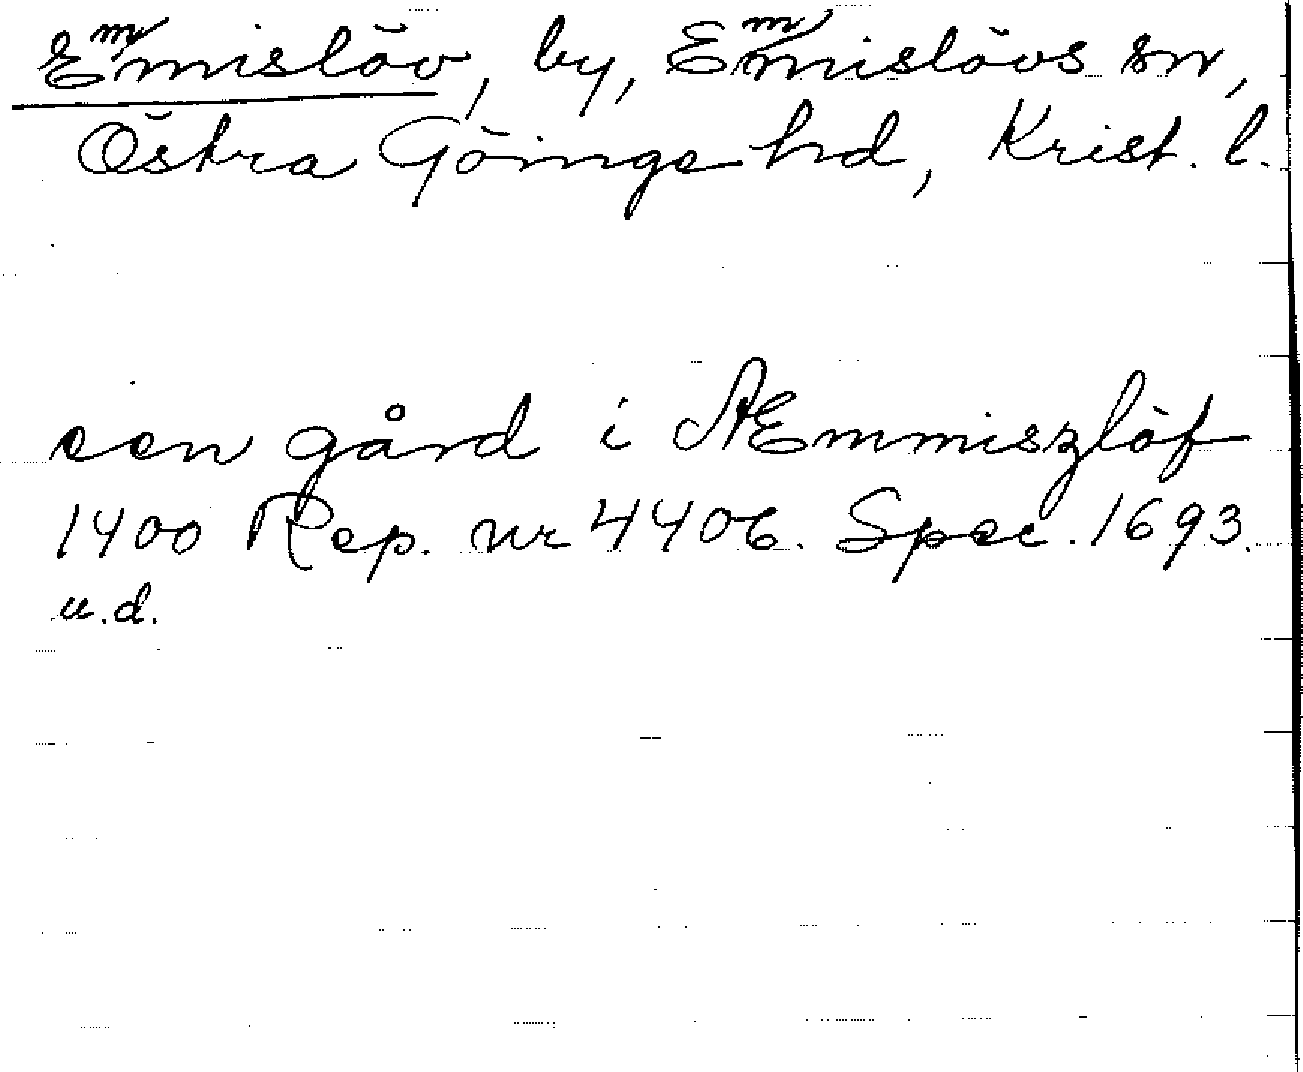 Emmislöv, by, Emmislövs sn,
Östra Göinge hd, Krist. l.
een gård i Æmmiszlöf
1400 Rep. nr 4406. Spec. 1693.
u.d.